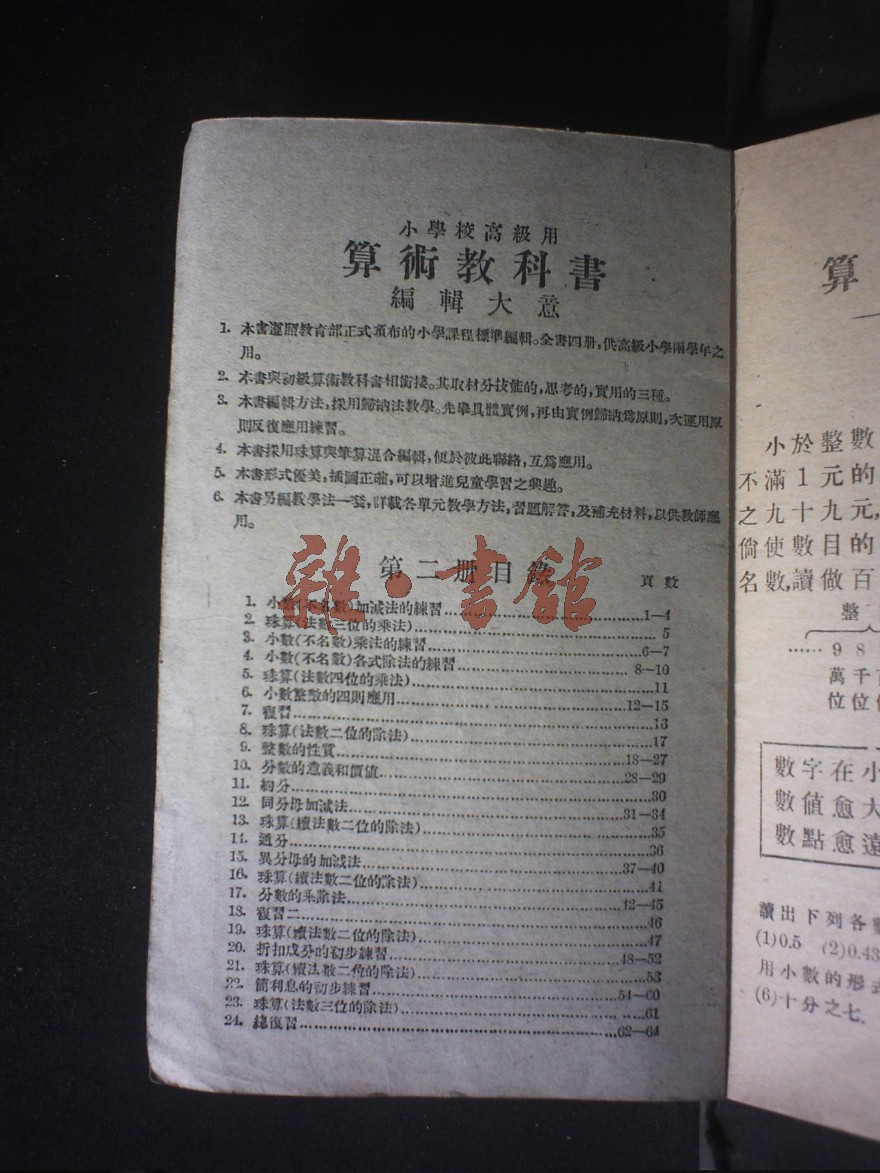 小學校高級用
算術教科書
編輯大意
1. 本書遵照教育部正式頒布的小學課程標準編輯。全書四册,供高級小學兩學年之
用。
2. 本書與初級算術教科書相銜接。其取材分技能的,思考的,實用的三種。
3. 本書編輯方法,採用歸納法教學。先舉具體實例,再由實例歸納爲原則,次運用原
則反復應用練習。
4. 本書採用珠算與筆算混合編輯,便於彼此聯絡,互爲應用。
5. 本書形式優美,插圖正確,可以增進兒童學習之興趣。
6. 本書另編教學法一套,詳載各單元教學方法,習題解答,及補充材料,以供教師應
用。
第二册目錄
頁數
1. 小數(不名數)加減法的練習……1—4
2. 珠算(法數三位的乘法)……5
3. 小數(不名數)乘法的練習……6—7
4. 小數(不名數)各式除法的練習……8—10
5. 珠算(法數四位的乘法)……11
6. 小數整數的四則應用……12—15
7. 複習……16
8. 珠算(法數二位的除法)……17
9. 整數的性質……18—27
10. 分數的意義和價值……28—29
11. 約分……30
12. 同分母加減法……31—34
13. 珠算(續法數二位的除法)……35
14. 通分……36
15. 異分母的加減法……37—40
16. 珠算(續法數二位的除法)……41
17. 分數的乘除法……42—45
18. 複習二……46
19. 珠算(續法數二位的除法)……47
20. 折扣成分的初步練習……48—52
21. 珠算(續法數二位的除法)……53
22. 簡利息的初步練習……54—60
23. 珠算(法數三位的除法)……61
24. 總復習……62—64
雜·書館
算
小於整數
不滿1元的
之九十九元,
倘使數目的
名數,讀做百
整
……9 8
萬千
位位
數字在小
數值愈大
數點愈遠
讀出下列各
(1)0.5 (2)0.43
用小數的形式
(6)十分之七.